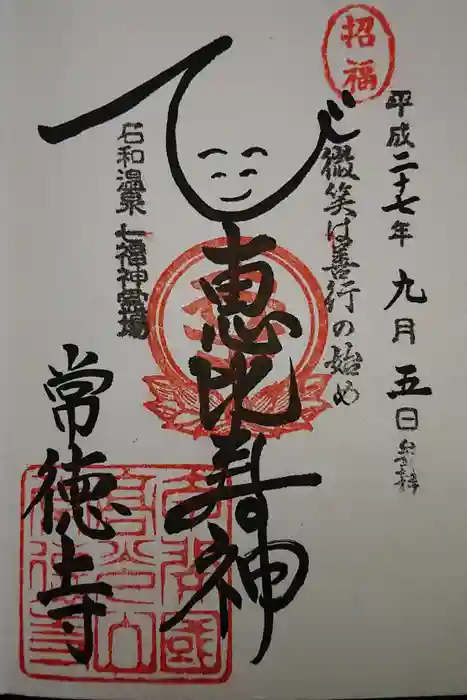 招福
平成二十七年 九月 五日 参拝
微笑は善行の始め
恵比寿神
石和温泉 七福神霊場
常徳寺